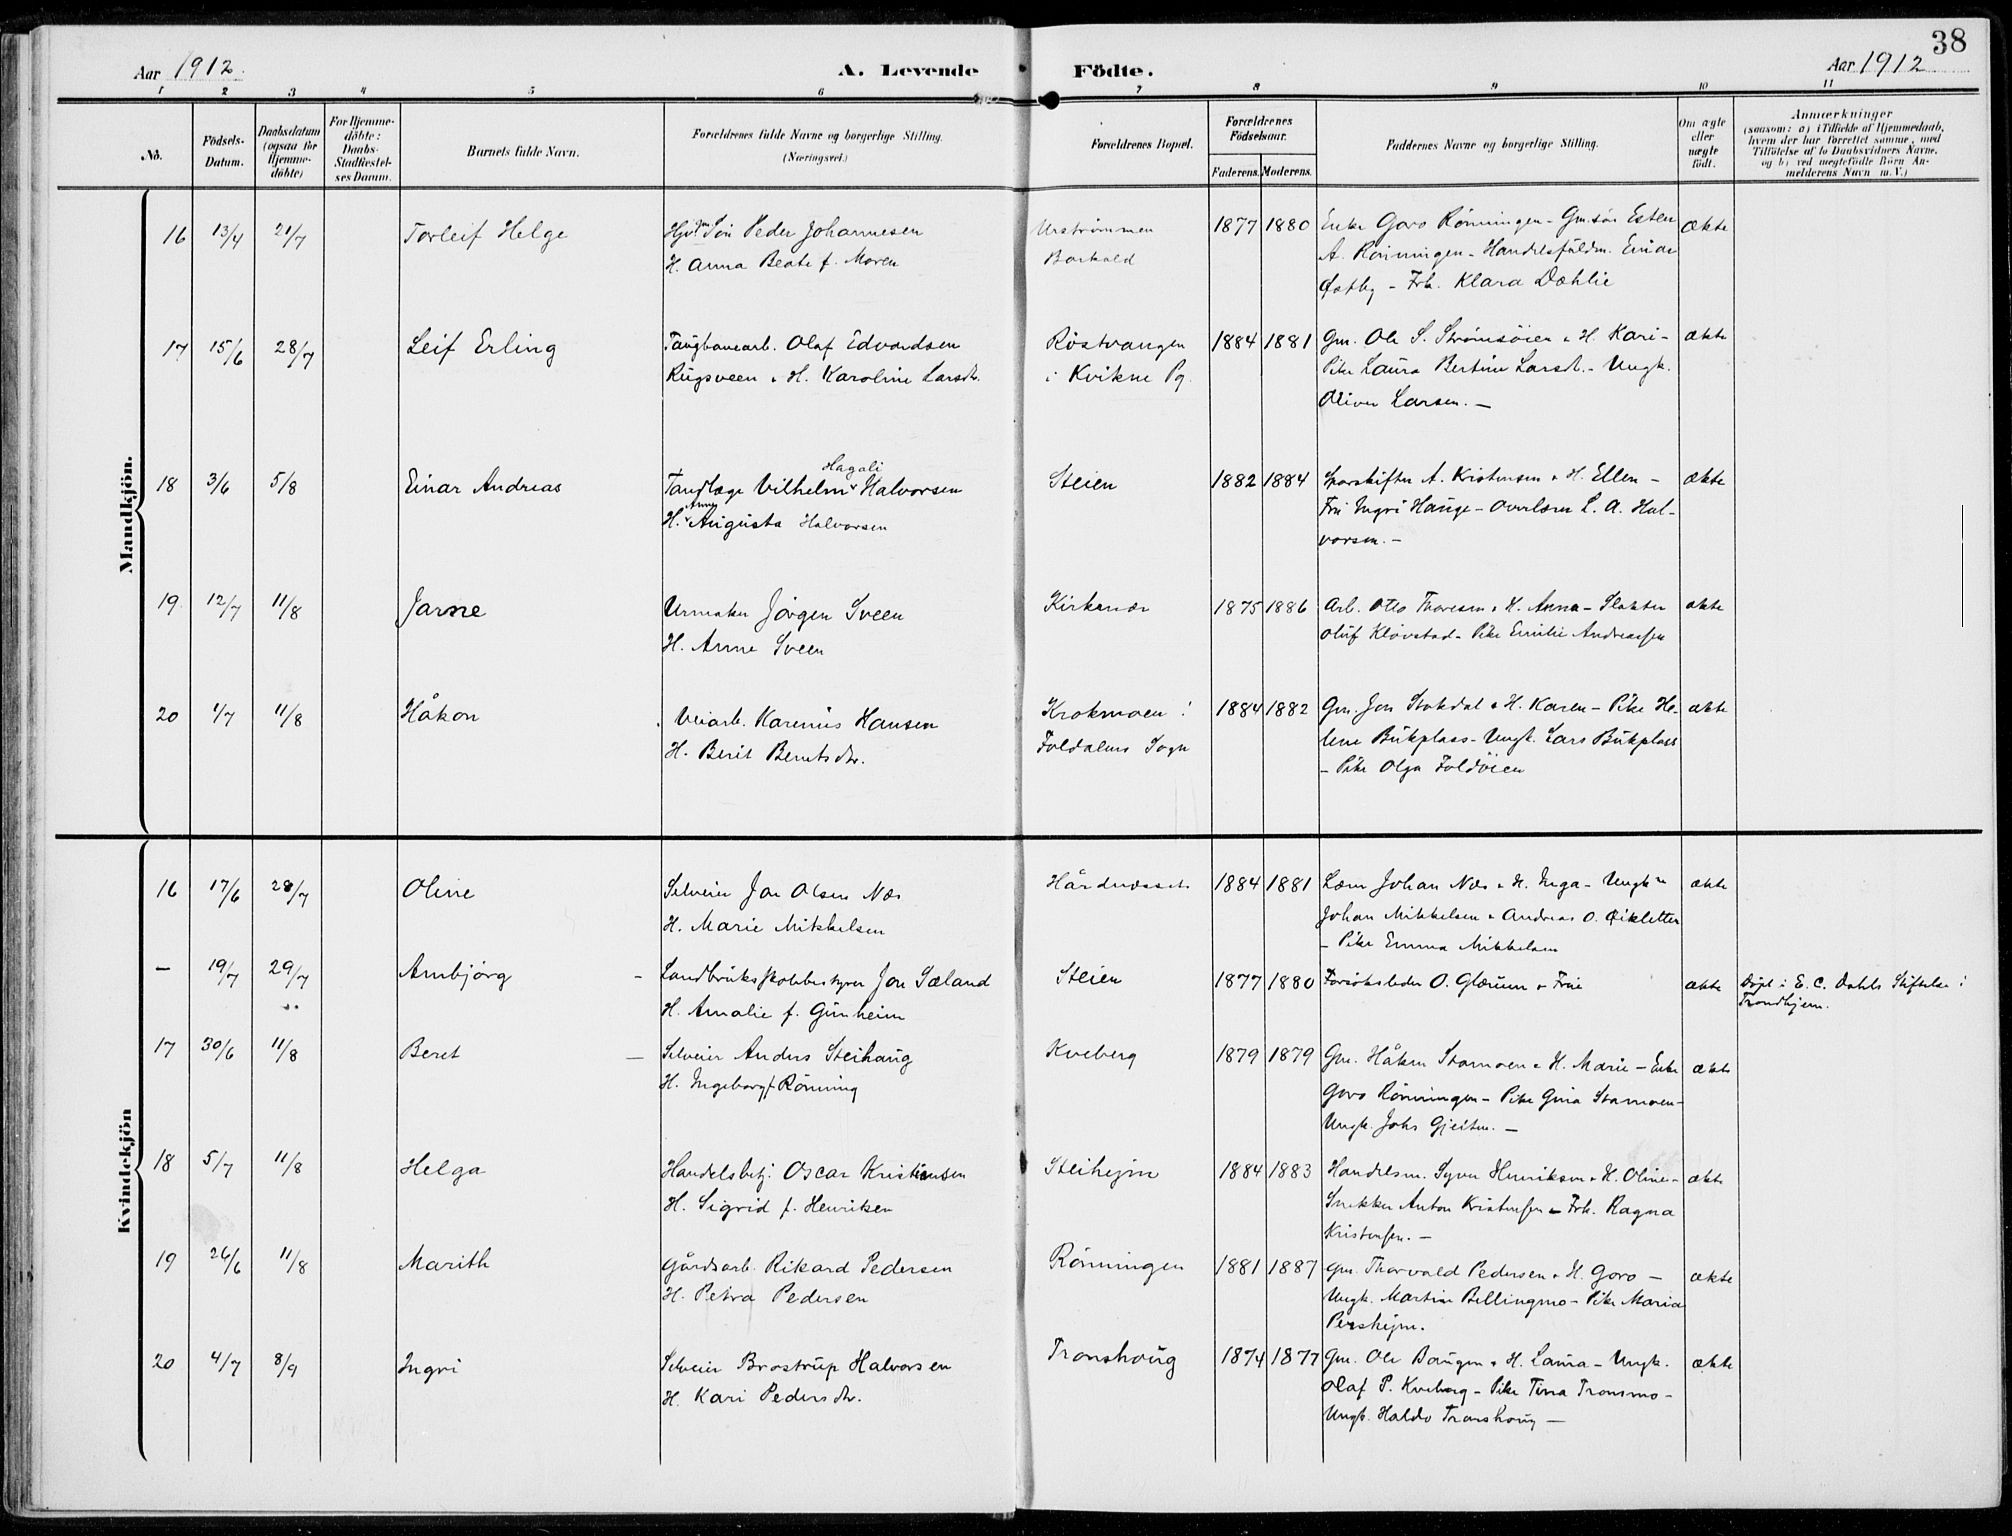 38
Aar 1912.
A. Levende Födte.
Aar 1912
1 2 3 4 5 6 7 8 9 10 11
No.
Födsels-
Datum.
Daabsdatum
(ogsaa for
Hjemme-
döbte)
For Hjemme-
döbte:
Daabs-
Stadfæstel-
ses Datum.
Barnets fulde Navn.
Forældrenes fulde Navne og borgerlige Stilling.
(Næringsvei.)
Forældrenes Bopæl.
Forældrenes
Födselsaar.
Faderens. Moderens.
Faddernes Navne og borgerlige Stilling.
Om ægte
eller
uægte
födt.
Anmærkninger
(saasom: a) i Tilfælde af Hjemmedaab,
hvem der har forrettet samme, med
Tilföielse af to Daabsvidners Navne.
og b) ved uegtefödte Börn An-
melderens Navn m. V.)
Mandkjön.
16 13/4 21/7 Torleif Helge
Sön Peder Johannesen
H. Anna Beate f. Moren
Urströmmen
Barkald
1877 1880
Enke Goro Rönningen - Gm.sön Esten
A. Rönningen - Handelsfuldm. Einar
Østby - Frk. Klara Dæhlie
ækte
17 15/6 28/7 Leif Erling
Taugbanearb. Olaf Edvardsen
Rugsveen & H. Karoline Larsdtr.
Röstvangen
i Kvikne Pg.
1884 1881
Gm. Ole S. Strömsöien & H. Kari -
Pike Laura Bertine Larsdt. - Ungk.
Oliver Larsen. -
ækte
18 3/6 5/8 Einar Andreas
Tandlæge Vilhelm Hagali Halvorsen
H. Anny Augusta Halvorsen
Steien
1882 1884
Sorenskifter A. Kristensen & H. Ellen -
Fru Ingri Hauge - Overlærer L. A. Hal-
vorsen. -
ækte
19 12/7 11/8 Jarne
Urmaker Jörgen Sveen
H. Anne Sveen
Kirkenær
1875 1886
Arb. Otto Thoresen & H. Anna - Slakter
Oluf Klövstad - Pike Emilie Andreassen
ækte
20 1/7 11/8 Håkon
Veiarb. Karenius Hansen
H. Berit Berntsdtr.
Krokmoen i
Foldalens Sogn
1884 1882
Gm. Jon Stokdal & H. Karen - Pike He-
lene Bukplass - Ungk. Lars Bukplass
- Pike Olga Foldöien
ækte
Kvindekjön
16 17/6 28/7 Oline
Selveier Jon Olsen Næs
H. Marie Mikkelsen
Hårdnesset
1884 1881
Lærer Johan Næs & H. Inga - Ungk.
Johan Mikkelsen & Andreas O. Eikletten
- Pike Emma Mikkelsen
ækte
- 19/7 29/7 Arnbjörg
Landbruksskolebestyrer Jon Sæland
H. Amalie f. Gunheim
Steien
1877 1880
Forsöksleder O. Glærum & Frue
ækte
Döpt i E. C. Dahls Stiftelse i
Trondhjem.
17 30/6 11/8 Beret
Selveier Anders Steihaug
H. Ingeborg f. Rönning
Kveberg
1879 1879
Gm. Håken Stamoen & H. Marie - Enke
Goro Rönningen - Pike Gina Stamoen -
Ungk. Johs Gjelten. -
ækte
18 5/7 11/8 Helga
Handelsbetj. Oscar Kristiansen
H. Sigrid f. Henriksen
Steihejm
1884 1883
Handelsm. Syver Henriksen & H. Oline -
Snekker Anton Kristensen - Frk. Ragna
Kristensen. -
ækte
19 26/6 11/8 Marith
Gårdsarb. Rikard Pedersen
H. Petra Pedersen
Rönningen
1881 1887
Gm. Thorvald Pedersen & H. Goro -
Ungk. Martin Bellingmo - Pike Maria
Pershejm.
ækte
20 4/7 8/9 Ingri
Selveier Brostrup Halvorsen
H. Kari Pedersdtr.
Tronshoug
1874 1877
Gm. Ole Dougen & H. Laura - Ungk.
Olaf P. Kveberg - Pike Tina Tronsmo -
Ungk. Haldo Tronshoug -
ækte